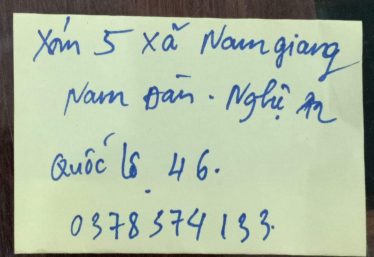 Xóm 5 xã Nam giang
Nam Đàn. Nghệ An
Quốc lộ 46.
0378374133.